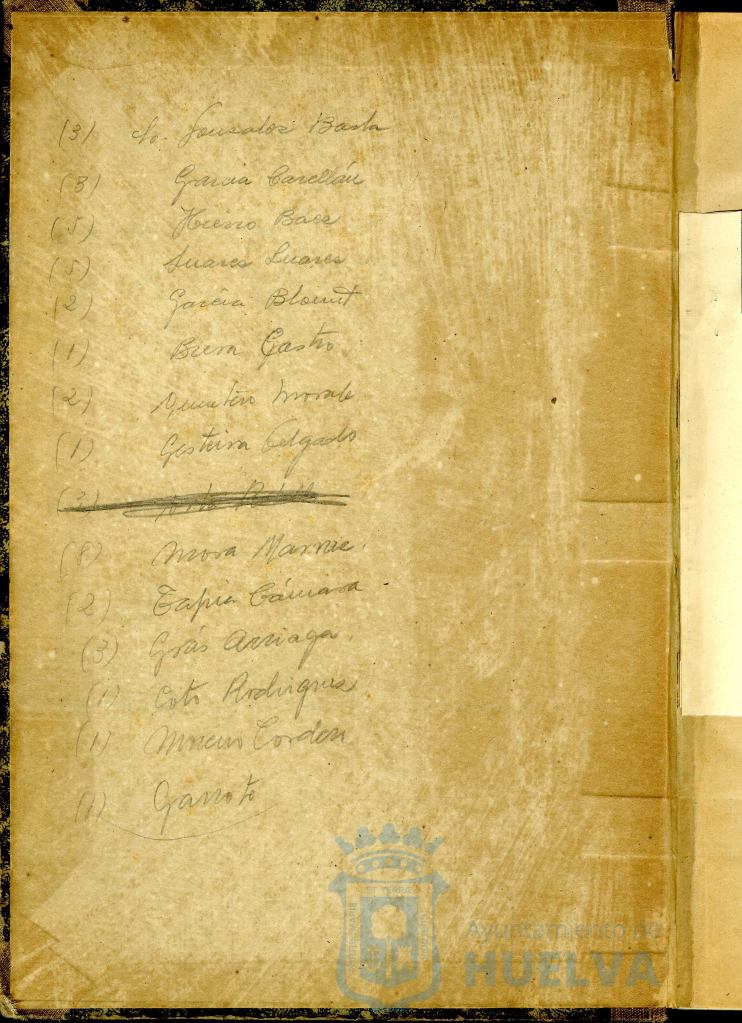 (3) Gonzalez Barba
(3) Garcia Castellán
(5) Hierro Baez
(5) Suarez Suarez
(2) Garcia Blount
(1) Brera Castro
(2) Quintero Morale
(1) Gesteira Delgado
(2)
(8) Mora Marnie.
(2) Tapia Cámara
(3) Grás Arriaga.
(1) Coto Rodriguez
(1) Moreno Cordero
(1) Garroto
ET TERRA
Ayuntamiento de
HUELVA